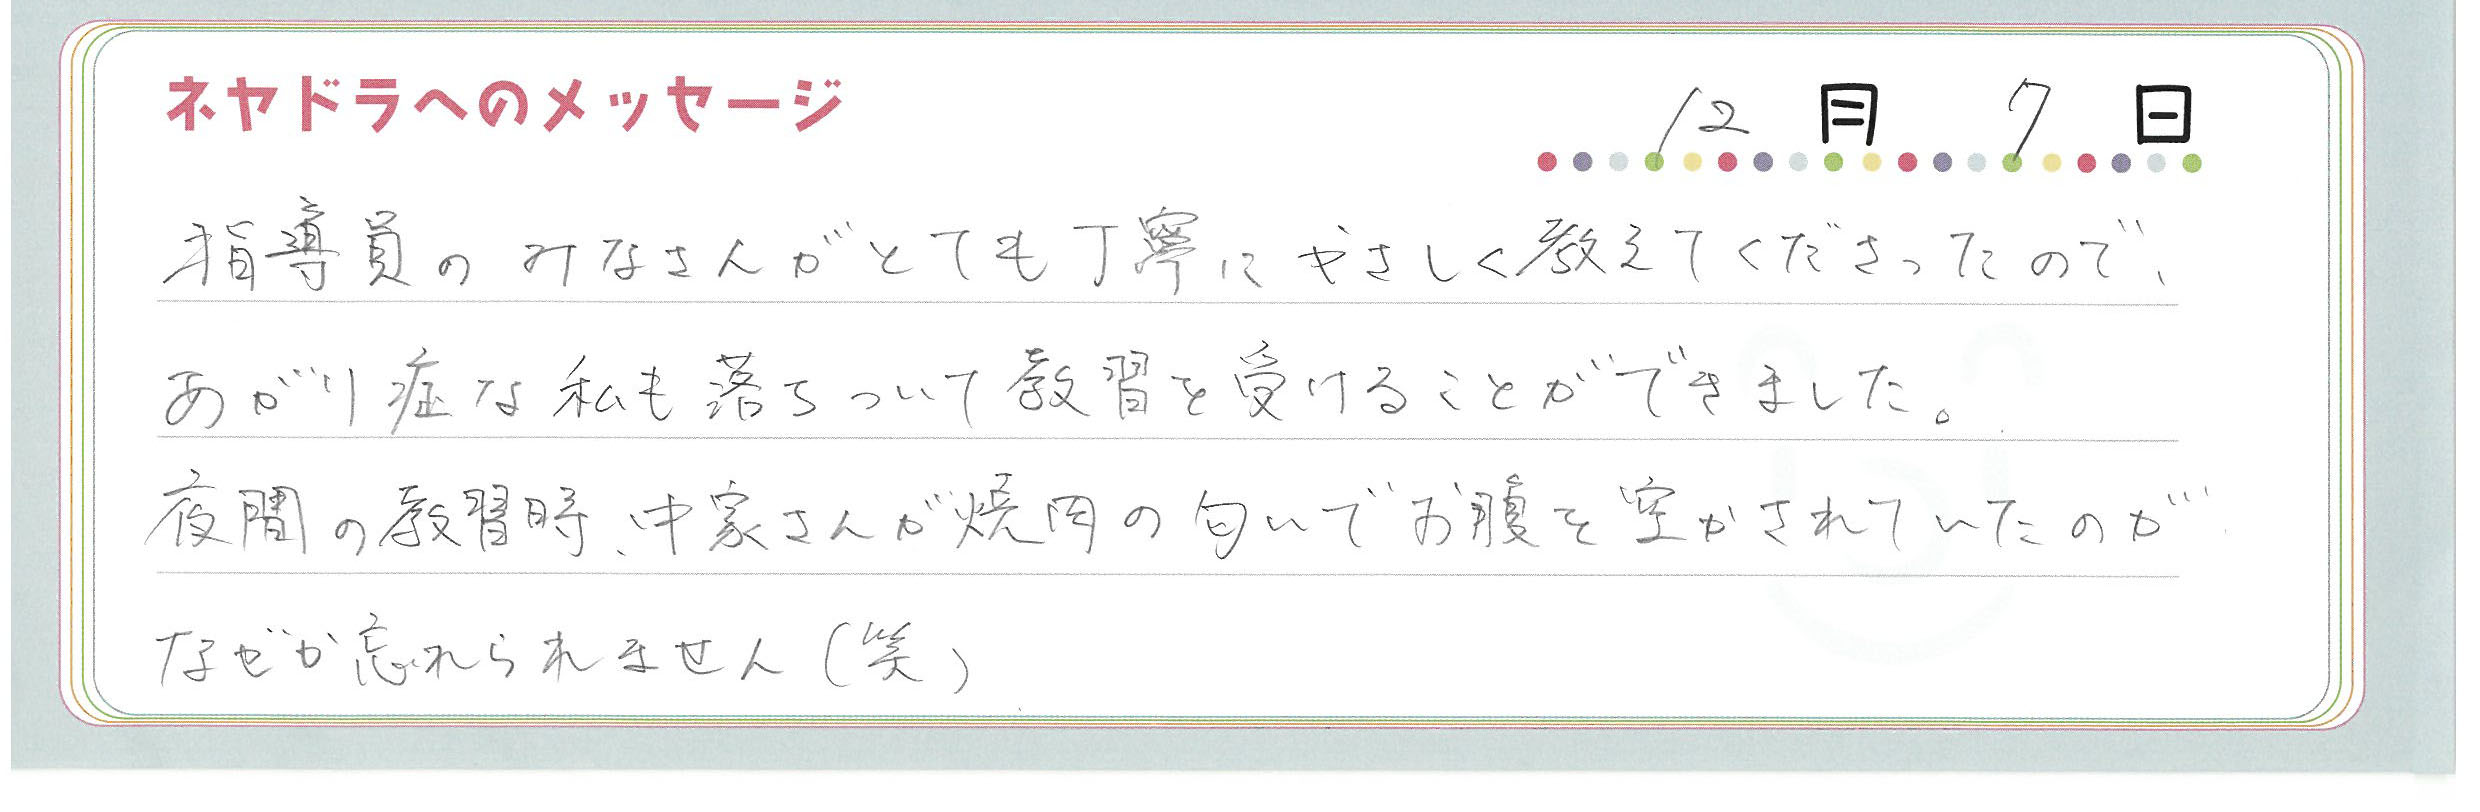 ネヤドラへのメッセージ
12月7日
指導員のみなさんがとても丁寧にやさしく教えてくださったので、
あがり症な私も落ちついて教習を受けることができました。
夜間の教習時、中家さんが焼肉の匂いでお腹を空かされていたのが
なぜか忘れられません(笑)